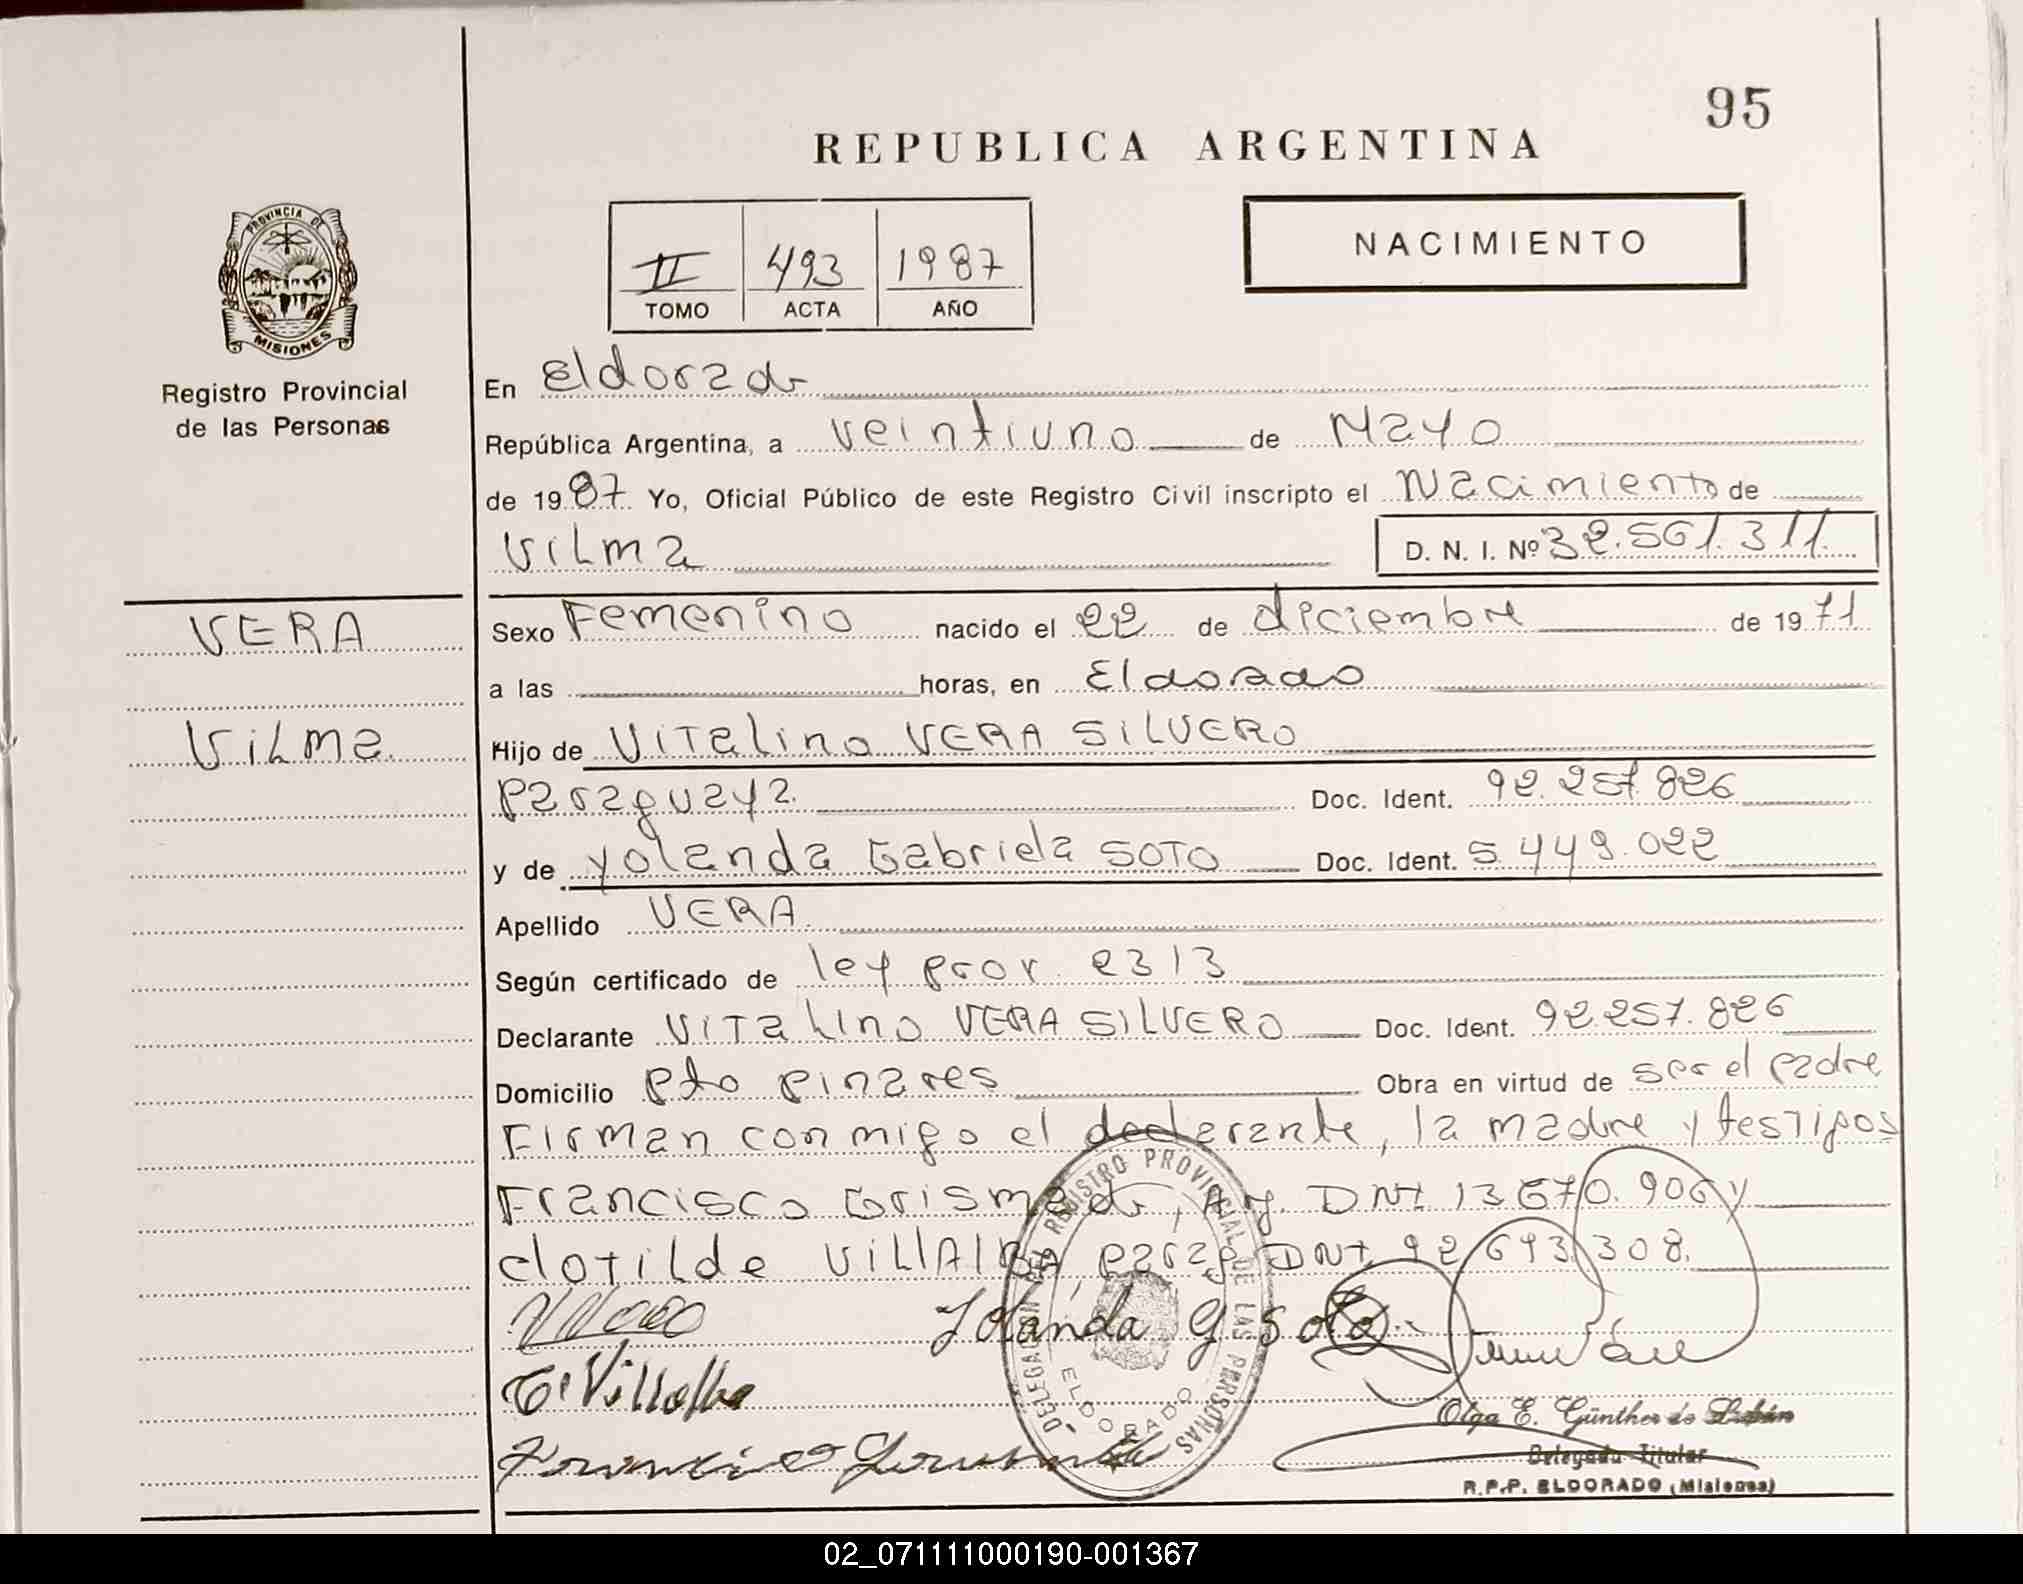 95
REPUBLICA ARGENTINA
PROVINCIA DE
MISIONES
Registro Provincial
de las Personas
II 493 1987
TOMO ACTA AÑO
NACIMIENTO
En Eldorado
República Argentina, a veintiuno de Mayo
de 1987 Yo, Oficial Público de este Registro Civil inscripto el Nacimiento de
Vilma D. N. I. Nº 32.561.311.
VERA
Vilma
Sexo Femenino nacido el 22 de diciembre de 1971
a las horas, en Eldorado
Hijo de Vitalino VERA SILVERO
Paraguaya. Doc. Ident. 92.257.826
y de Yolanda Gabriela SOTO Doc. Ident. 5.449.022
Apellido VERA.
Según certificado de ley prov. 2313
Declarante Vitalino VERA SILVERO Doc. Ident. 92.257.826
Domicilio Pto Pinares Obra en virtud de ser el padre
Firman conmigo el declarante, la madre y testigos
Francisco Grismado, Arg. DNI. 13.670.906 y
Clotilde VILLALBA, parag DNI. 92.693.308.
Yolanda G Soto
C. Villalba
Francisco
DELEGACION DEL REGISTRO PROVINCIAL DE LAS PERSONAS
ELDORADO
Olga E. Günther de
Delegada Titular
R.P.P. ELDORADO (Misiones)
02_071111000190-001367